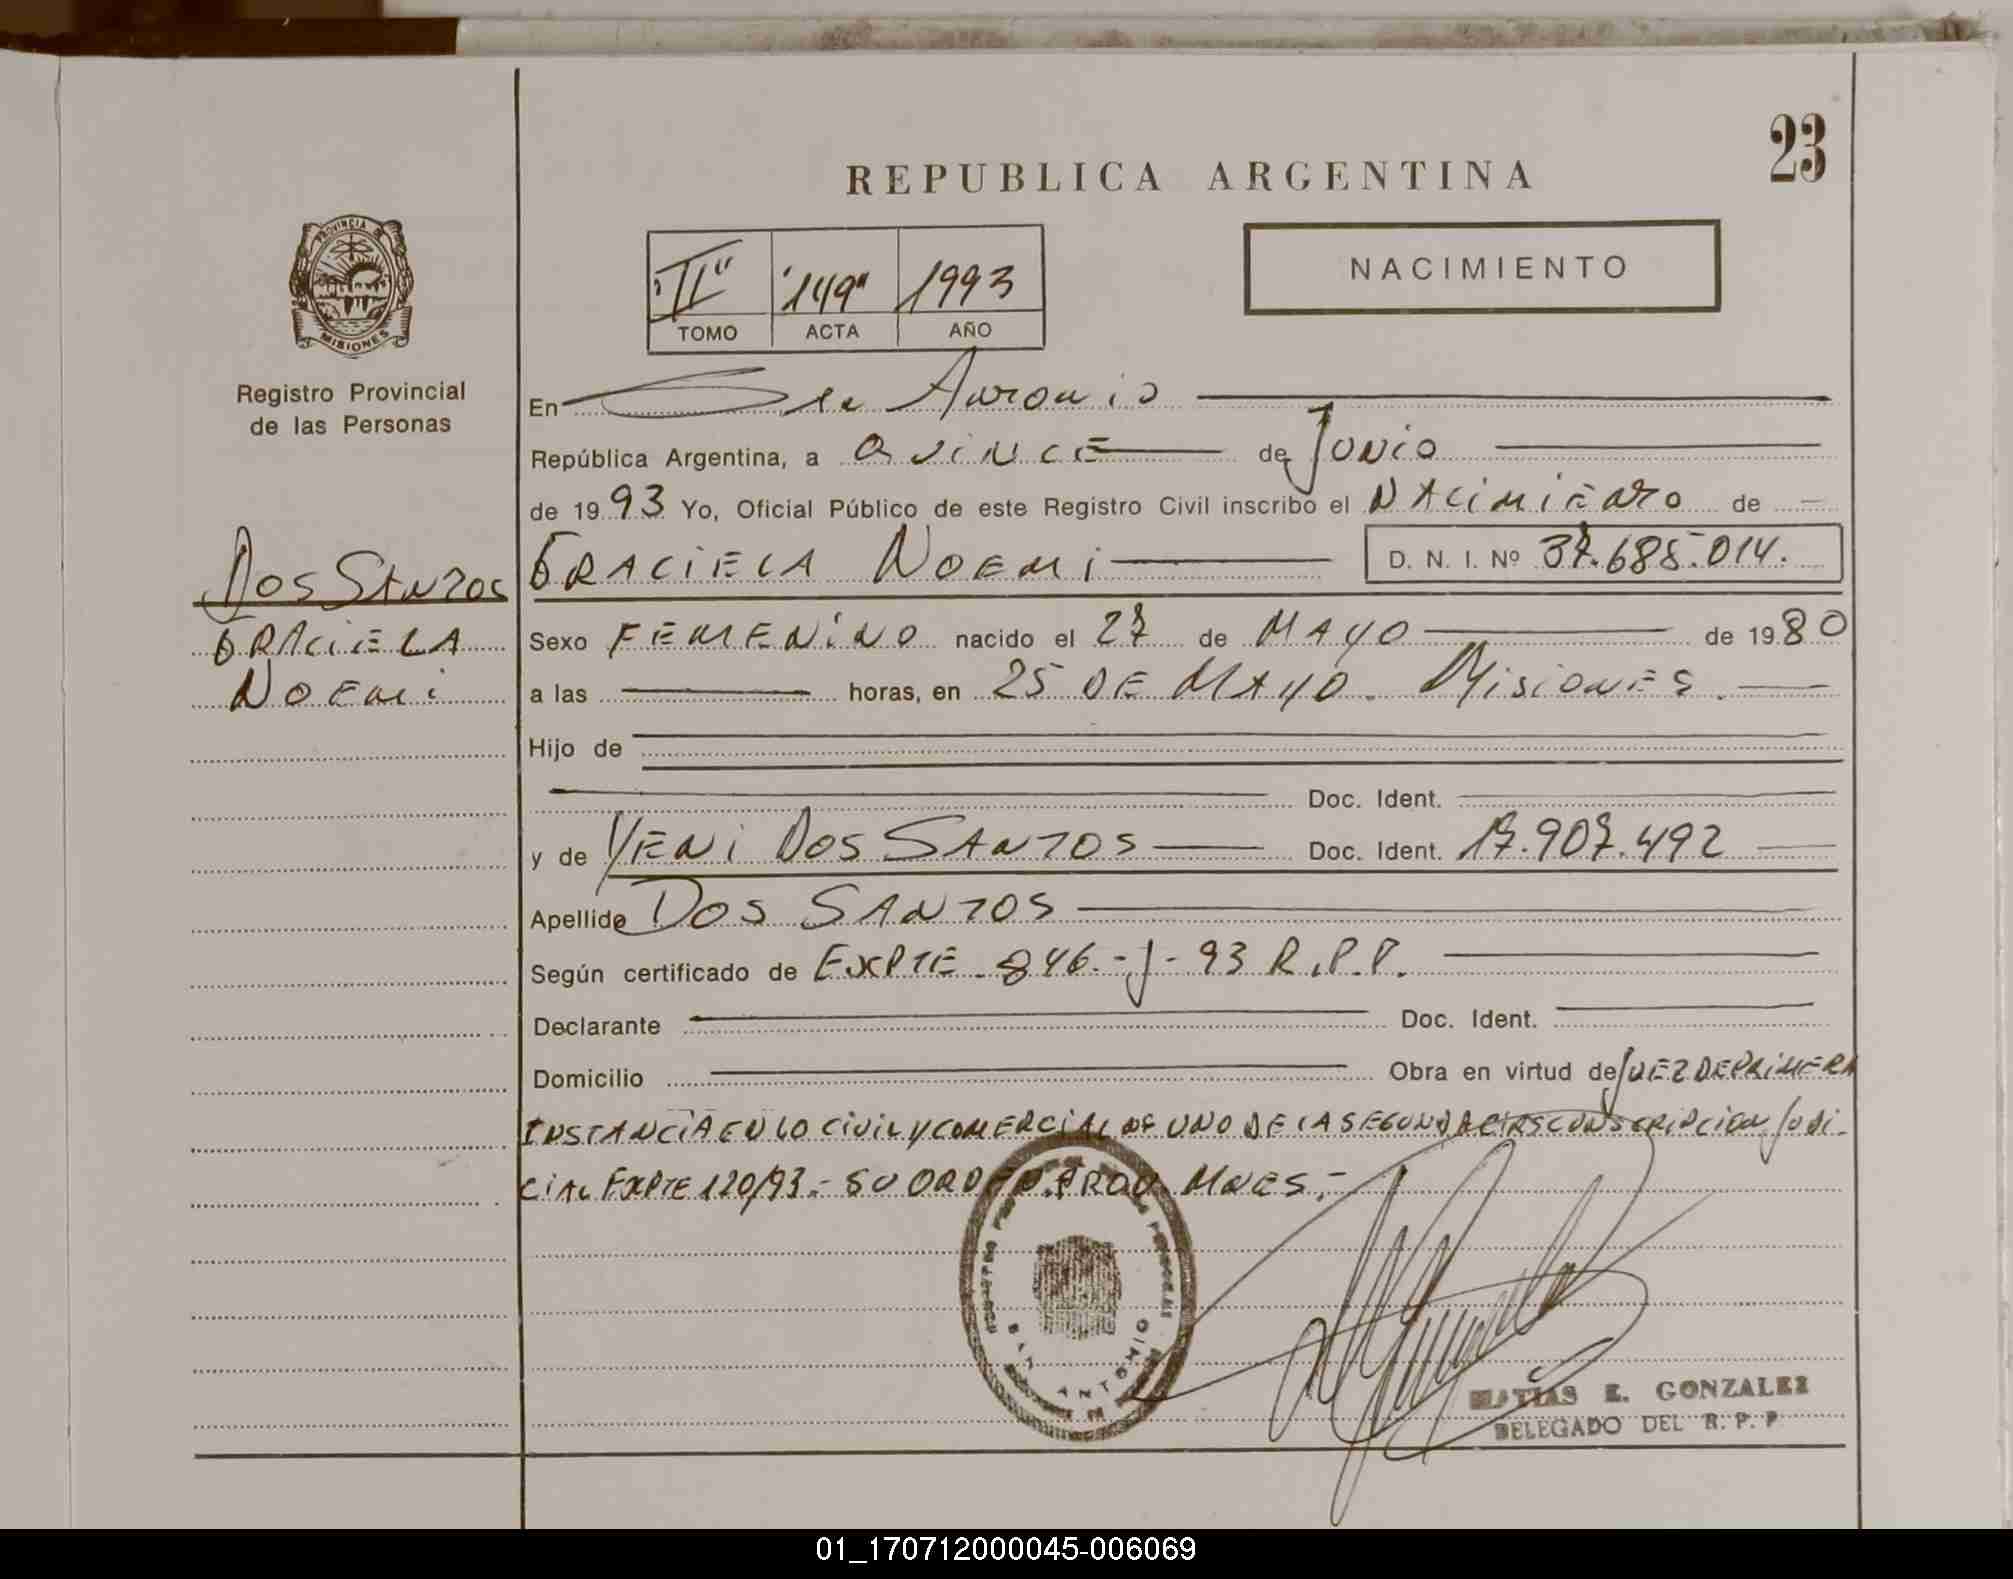 23
REPUBLICA ARGENTINA
NACIMIENTO
"II" "149" 1993
TOMO ACTA AÑO
PROVINCIA DE
MISIONES
Registro Provincial
de las Personas
En San Antonio
República Argentina, a QUINCE de JUNIO
de 1993 Yo, Oficial Público de este Registro Civil inscribo el NACIMIENTO de
GRACIELA NOEMI D. N. I. Nº 37.685.014.
DOS SANTOS
GRACIELA
NOEMI
Sexo FEMENINO nacido el 27 de MAYO de 1980
a las horas, en 25 DE MAYO. MISIONES.
Hijo de
Doc. Ident.
y de YENI DOS SANTOS Doc. Ident. 17.907.492
Apellido DOS SANTOS
Según certificado de EXPTE 846.-J-93 R.P.P.
Declarante Doc. Ident.
Domicilio Obra en virtud de JUEZ DE PRIMERA
INSTANCIA EN LO CIVIL Y COMERCIAL Nº UNO DE LA SEGUNDA CIRSCUNSCRIPCION JUDI-
CIAL EXPTE 120/93.- SU ORDEN. PROV. MNES.-
SAN ANTONIO
MATIAS E. GONZALEZ
DELEGADO DEL R. P. P
01_170712000045-006069